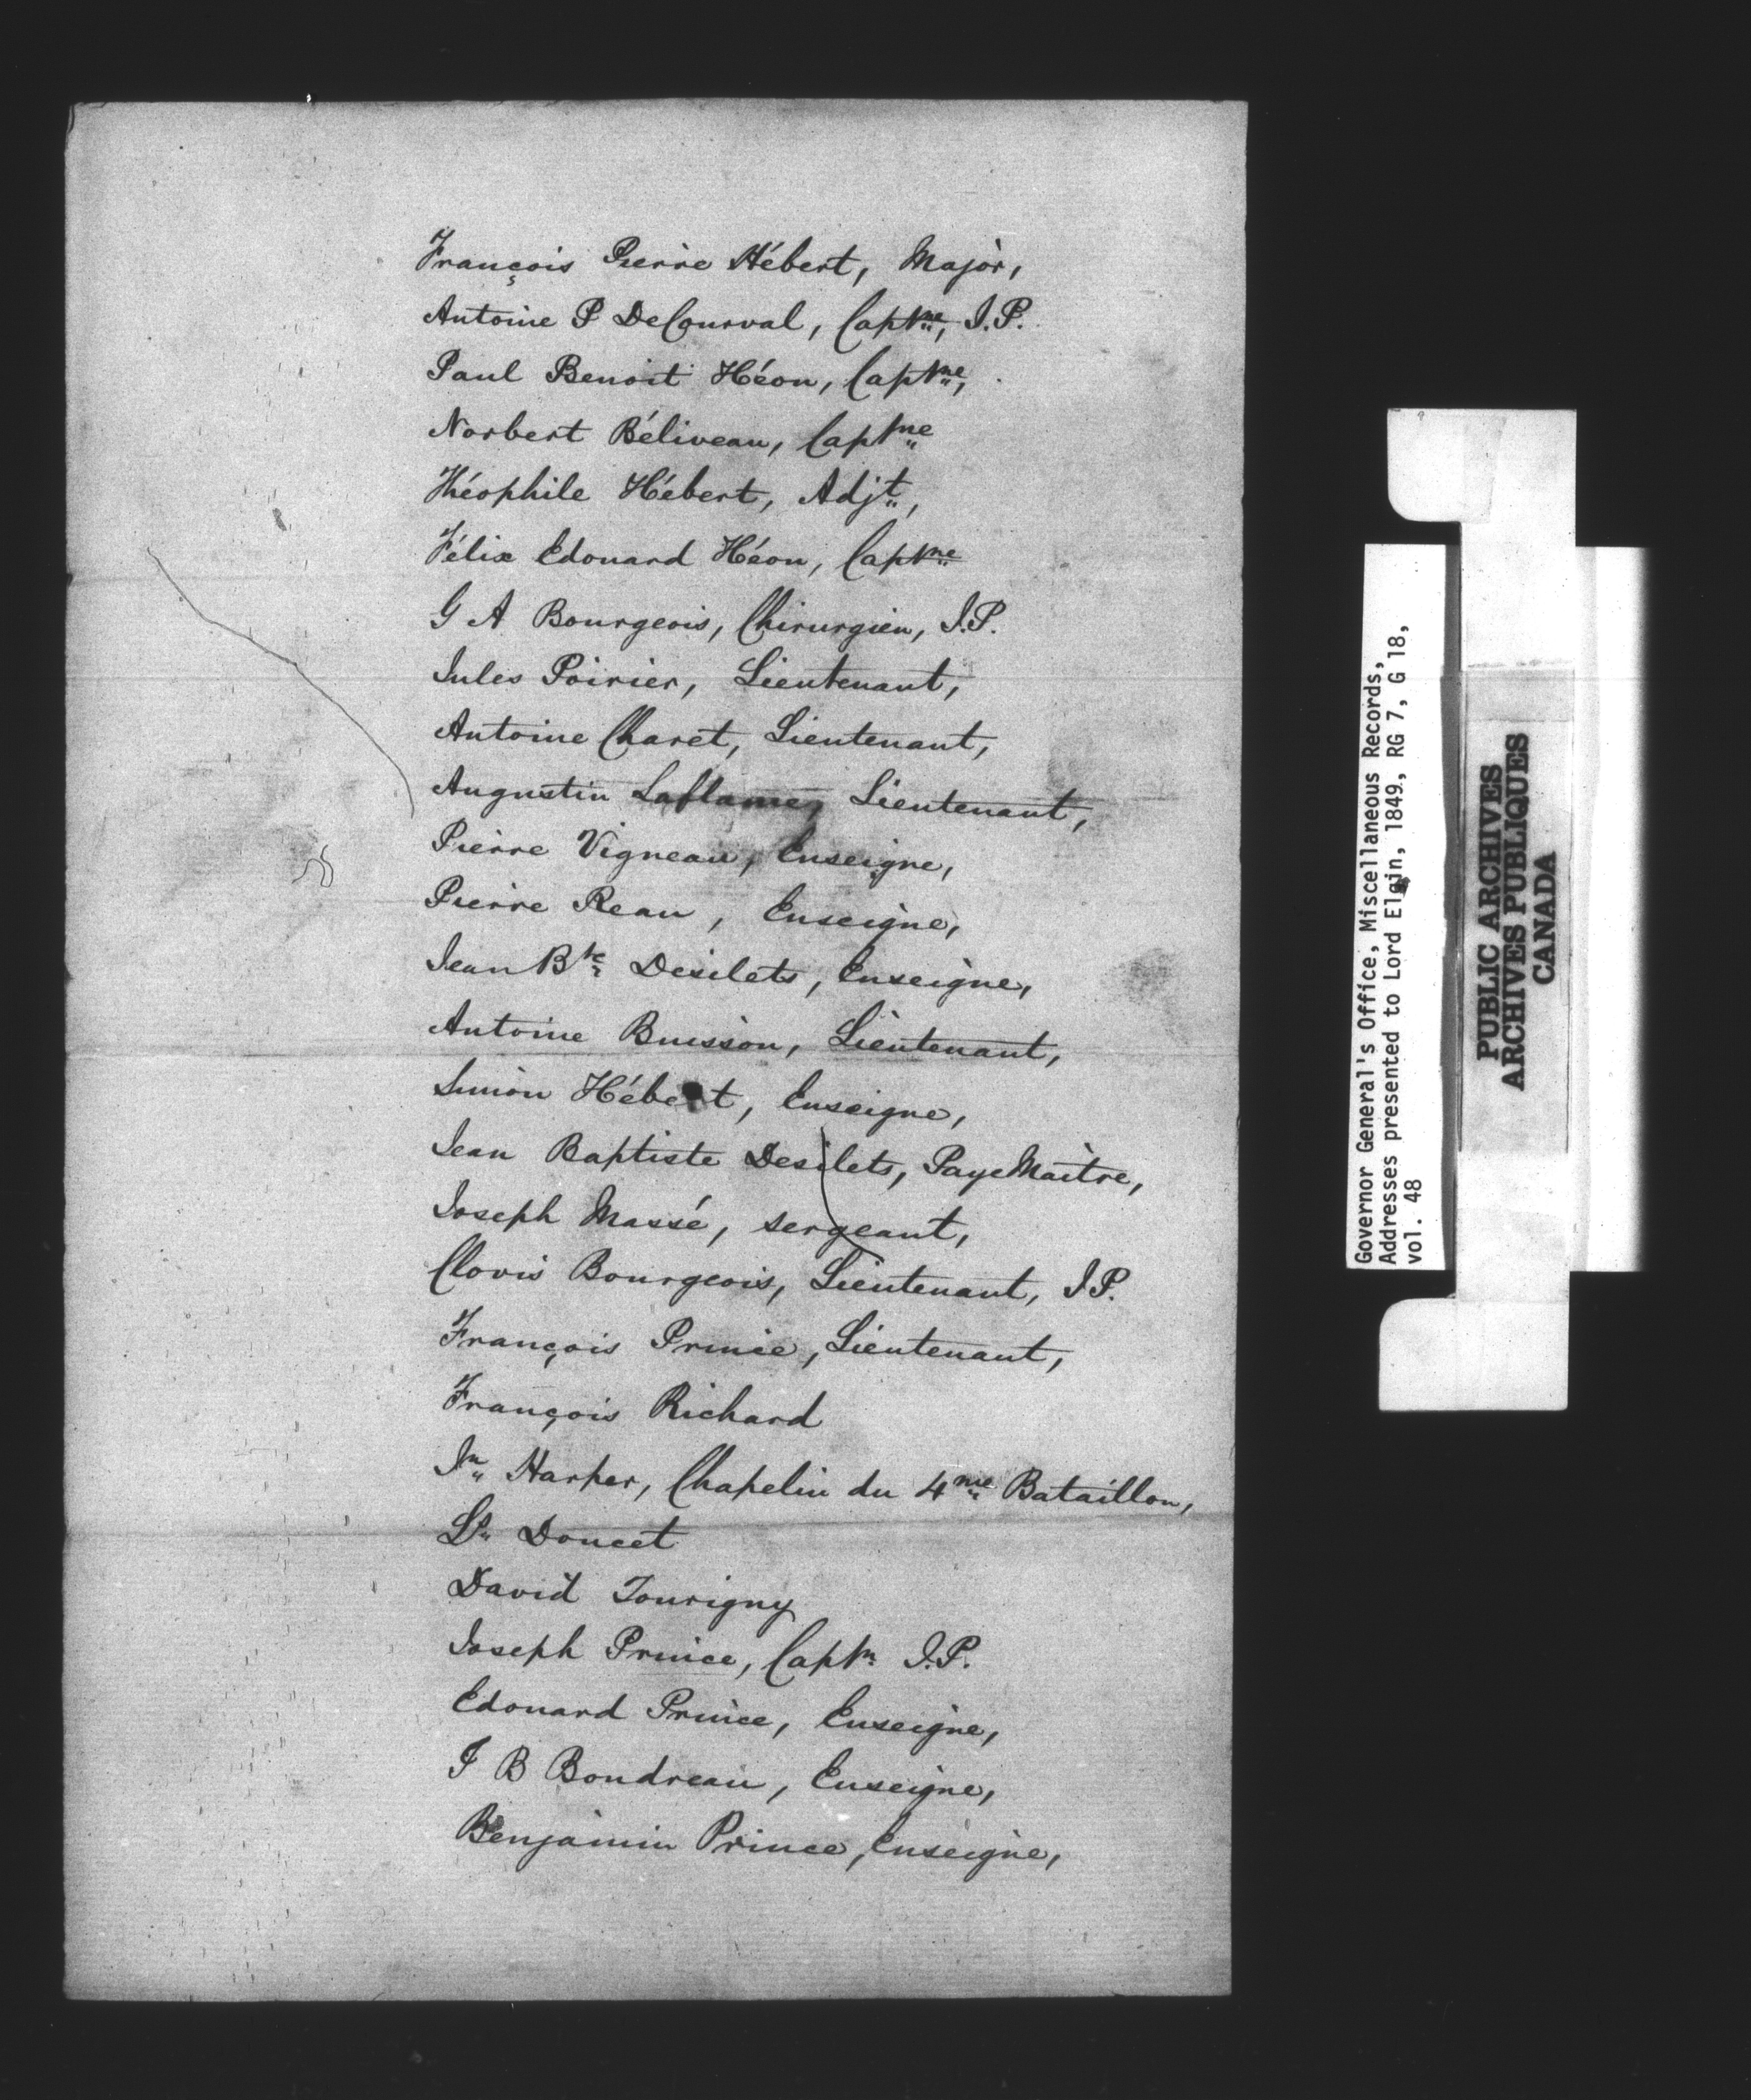 François Pierre Hébert, Major,
Antoine P DeCourval, Captne, J.P.
Paul Benoit Héon, Captne,
Norbert Béliveau, Captne
Théophile Hébert, Adjt,
Félix Edouard Héon, Captne
G A Bourgeois, Chirurgien, J.P.
Jules Poirier, Lieutenant,
Antoine Charet, Lieutenant,
Augustin Laflame, Lieutenant,
Pierre Vigneau, Enseigne,
Pierre Reau, Enseigne,
Jean Bte Desilets, Enseigne,
Antoine Buisson, Lieutenant,
Simon Hébert, Enseigne,
Jean Baptiste Desilets, PayeMaître,
Joseph Massé, sergeant,
Clovis Bourgeois, Lieutenant, J P.
François Prince, Lieutenant,
François Richard
Jn Harper, Chapelin du 4me Bataillon,
Ls Doucet
David Tourigny
Joseph Prince, Captn J.P.
Edouard Prince, Enseigne,
J B Boudreau, Enseigne,
Benjamin Prince, Enseigne,
Governor General's Office, Miscellaneous Records,
Addresses presented to Lord Elgin, 1849. RG 7, G 18,
vol. 48
PUBLIC ARCHIVES
ARCHIVES PUBLIQUES
CANADA